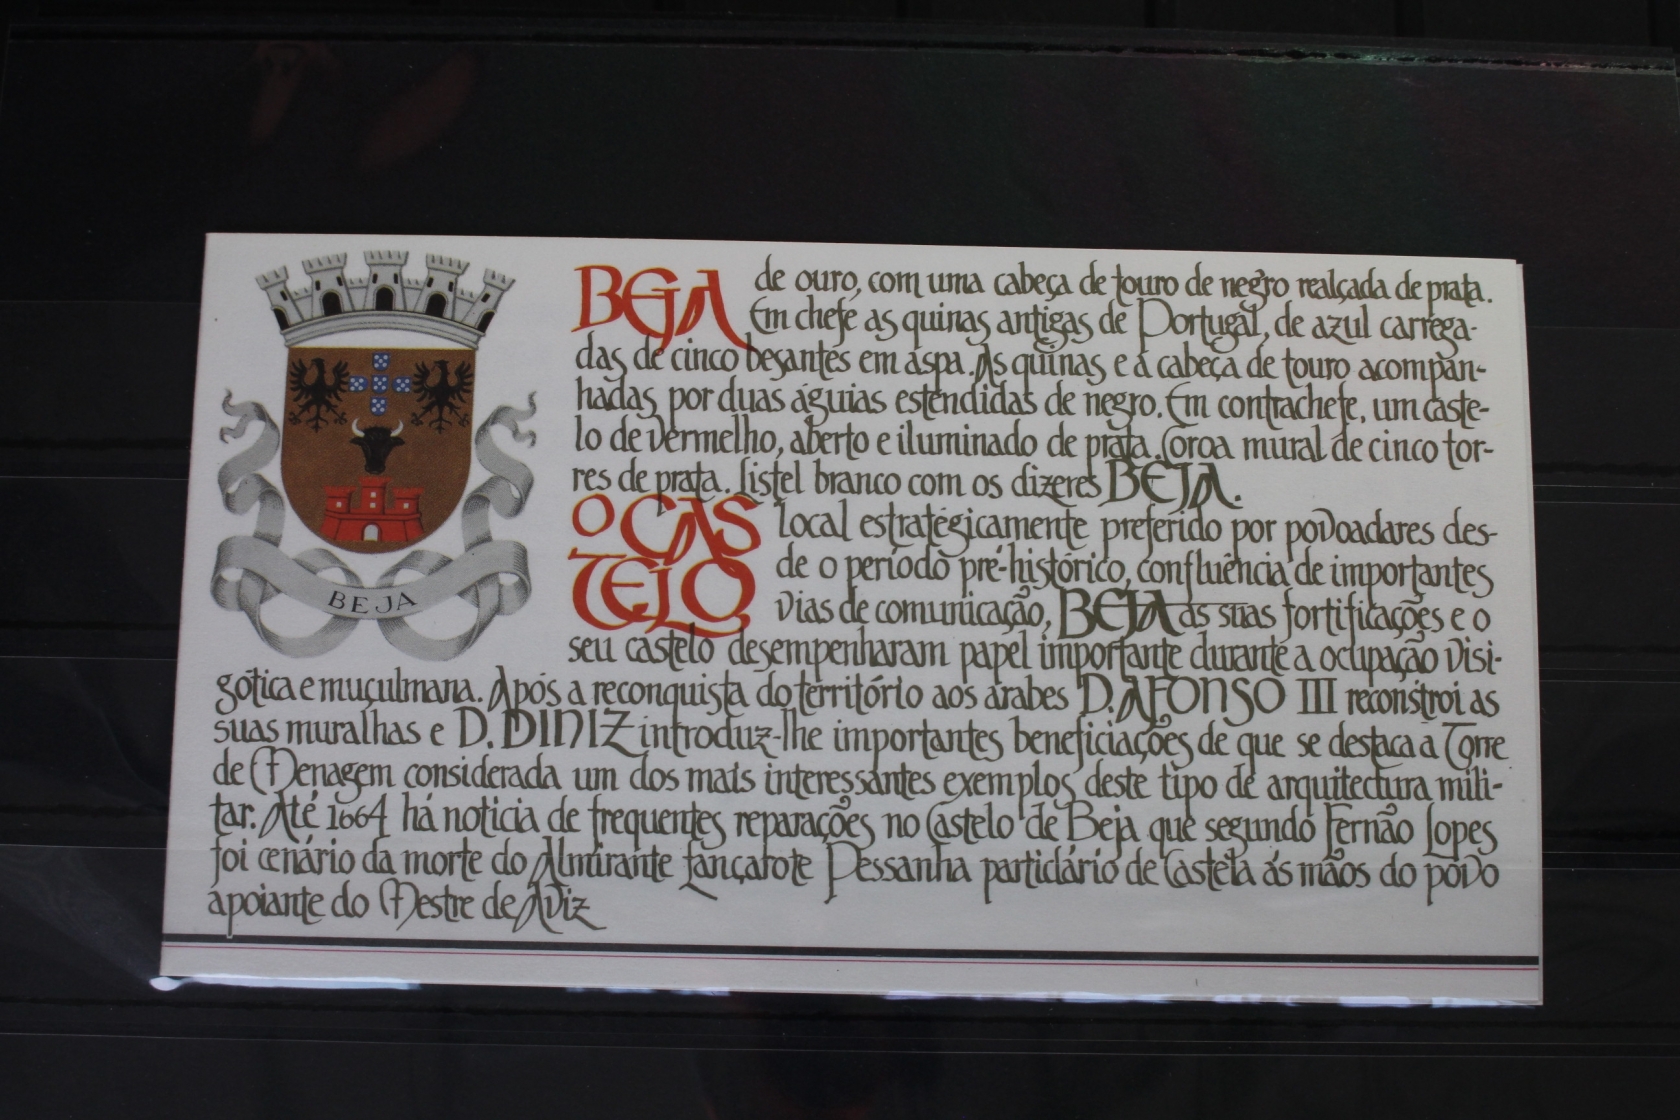 BEJA de ouro, com uma cabeça de touro de negro realçada de prata.
Em chefe as quinas antigas de Portugal, de azul carrega-
das de cinco besantes em aspa. As quinas e a cabeça de touro acompan-
hadas por duas águias estendidas de negro. Em contrachefe, um caste-
lo de vermelho, aberto e iluminado de prata. Coroa mural de cinco tor-
res de prata. Listel branco com os dizeres BEJA.
O CAS
TELO
local estratégicamente preferido por povoadares des-
de o período pré-histórico, confluência de importantes
vias de comunicação, BEJA as suas fortificações e o
seu castelo desempenharam papel importante durante a ocupação visi-
gótica e muçulmana. Após a reconquista do território aos árabes D. AFONSO III reconstroi as
suas muralhas e D. DINIZ introduz-lhe importantes beneficiações de que se destaca a Torre
de Menagem considerada um dos mais interessantes exemplos deste tipo de arquitectura mili-
tar. Até 1664 há noticia de frequentes reparações no Castelo de Beja que segundo Fernão Lopes
foi cenário da morte do Almirante Lançarote Pessanha particlário de Castela ás mãos do povo
apoiante do Mestre de Aviz
BEJA